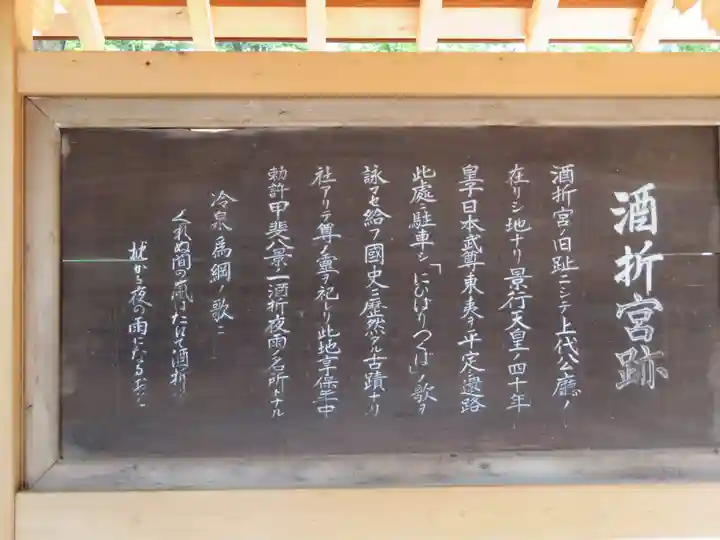 酒折宮跡
酒折宮ノ旧趾ニシテ上代公廰ノ
在リシ地ナリ景行天皇ノ四十年
皇子日本武尊東夷ヲ平定ノ還路
此處ニ駐車シ「にひはりつくば」ノ歌ヲ
詠マセ給フ國史ニ歴然タル古蹟ナリ
社アリテ尊ノ靈ヲ祀レリ此地享保年中
勅許甲斐八景ノ一酒折夜雨ノ名所トナル
冷泉為綱ノ歌ニ
くれぬ間の風たにて酒折の
枕から夜の雨になるおと